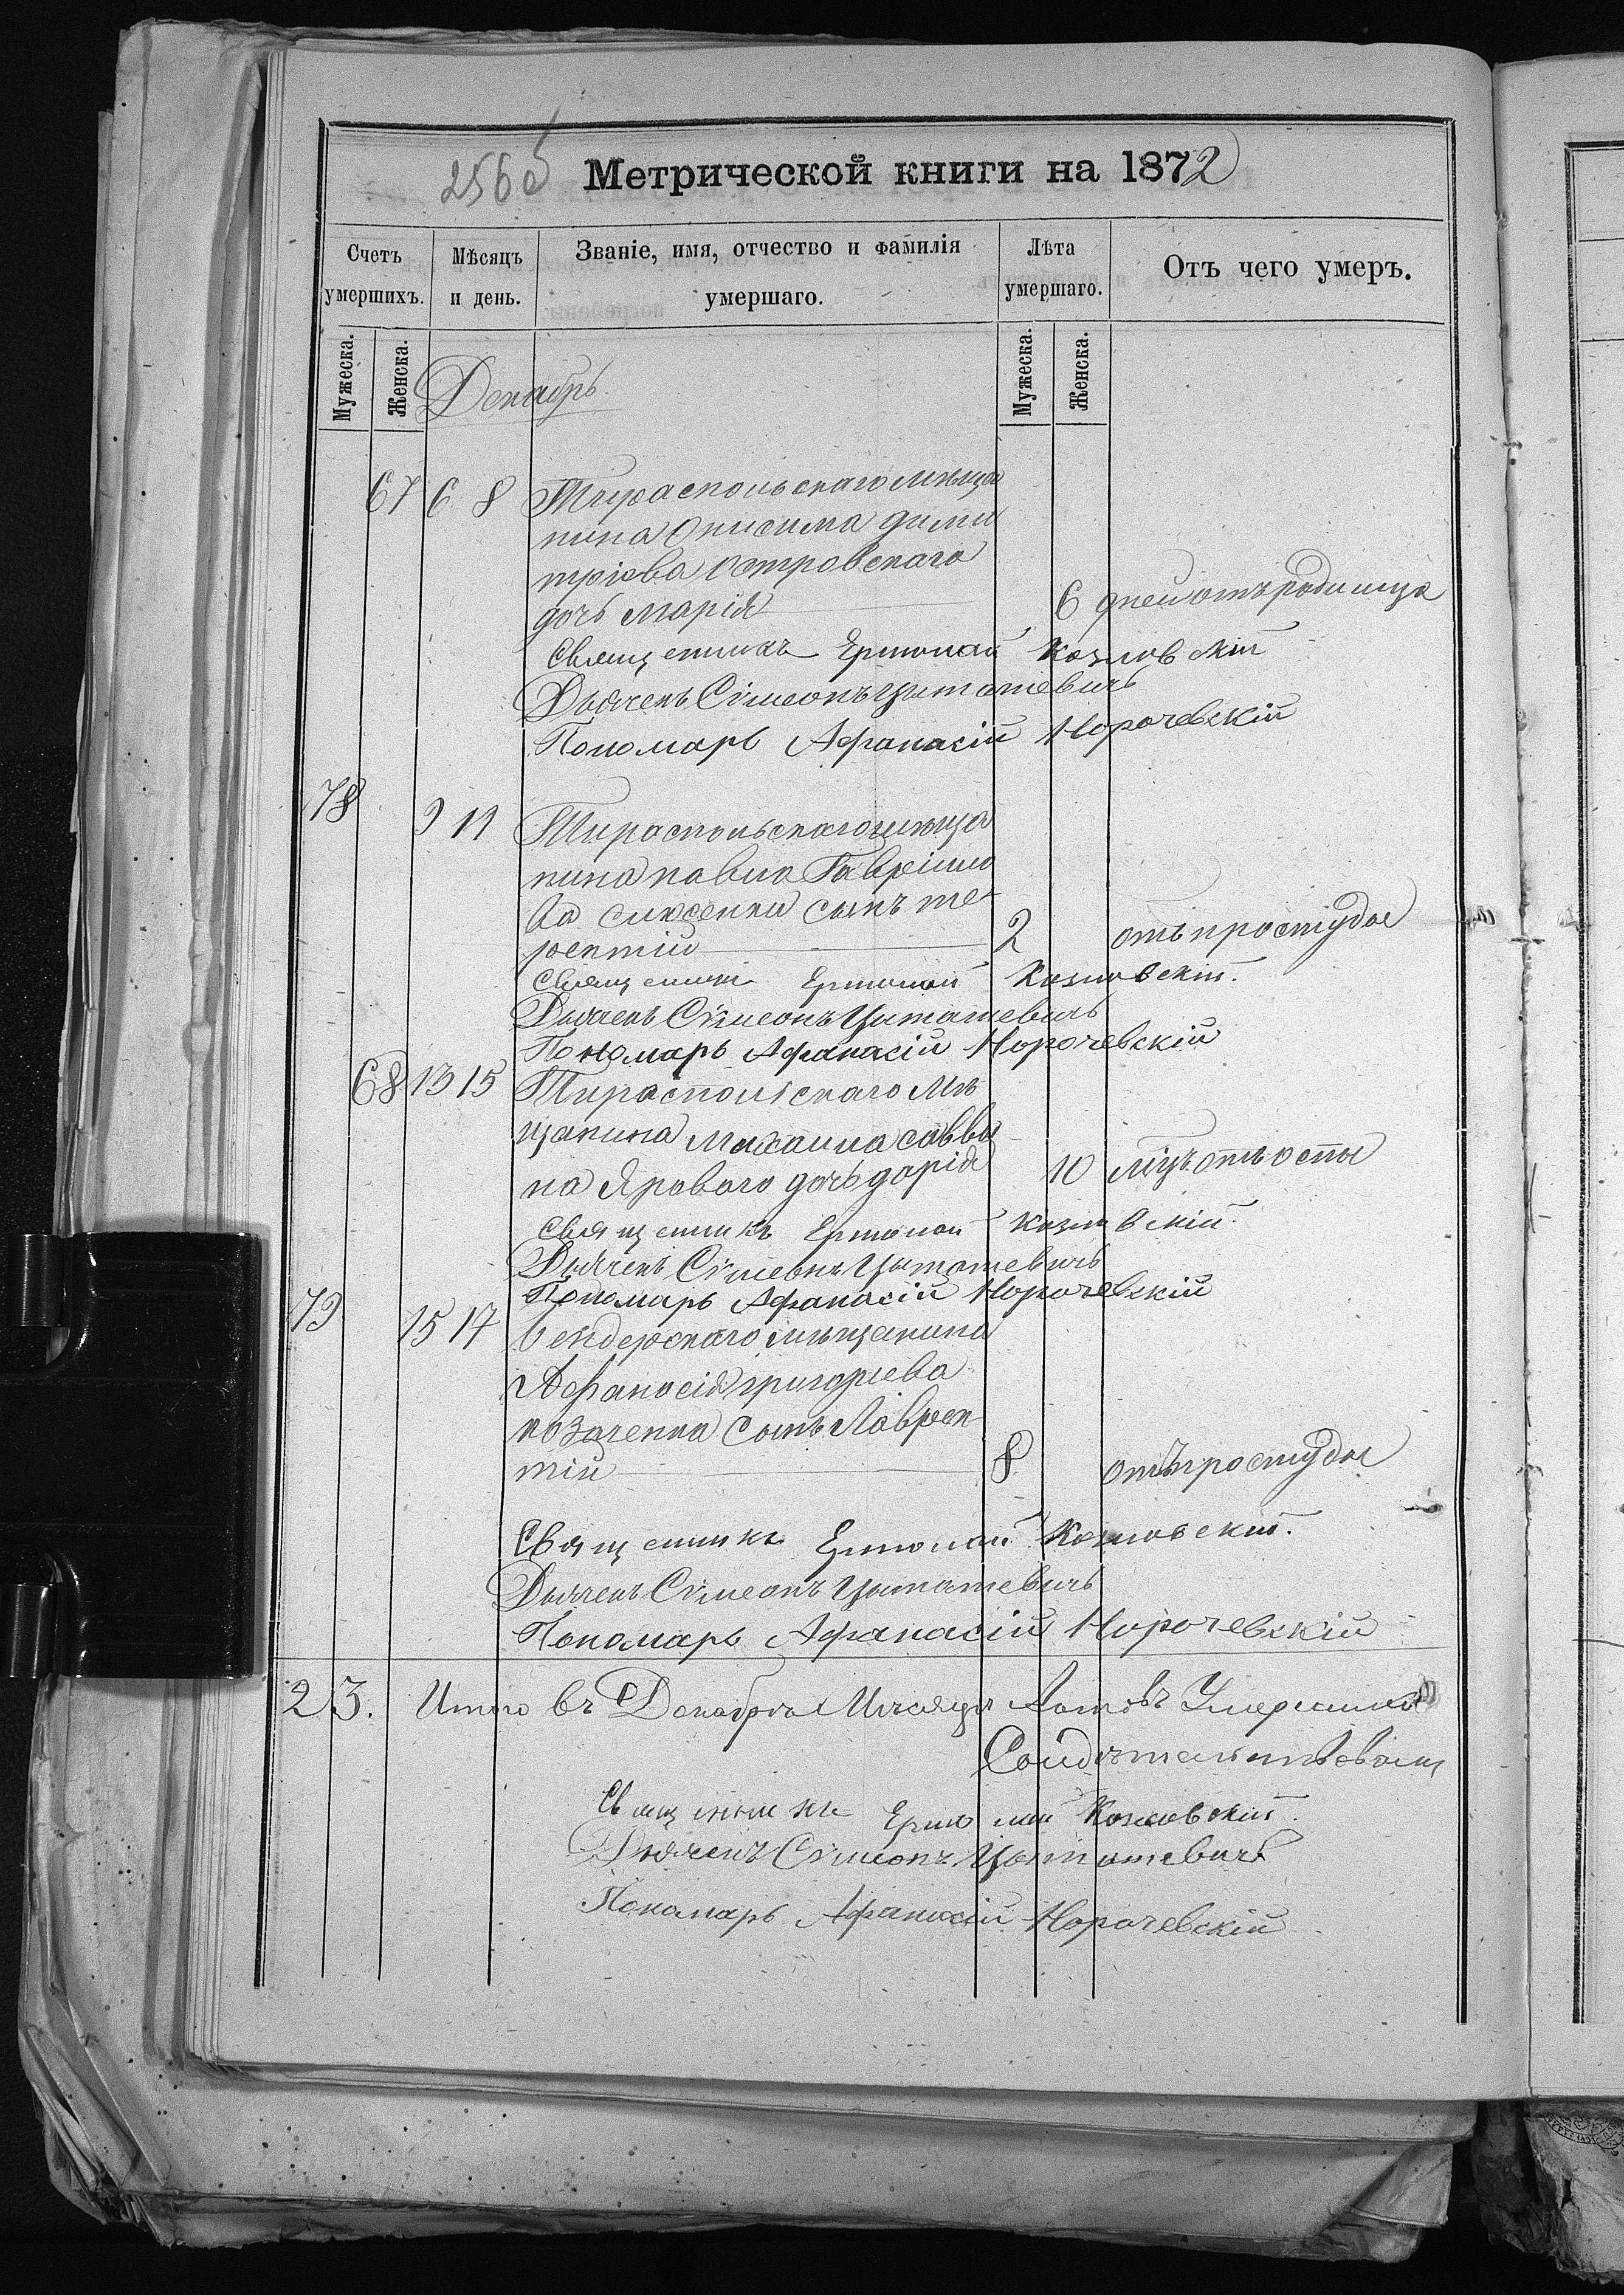 256об
Метрической книги на 1872
Счетъ умершихъ.
Мѣсяцъ и день.
Званіе, имя, отчество и фамилія умершаго.
Лѣта умершаго.
Отъ чего умеръ.
Мужеска. Женска. Мужеска. Женска.
Декабрь.
67 6 8 Тираспольскаго мѣща
нина Онисима дими
тріева Островскаго
дочь Марія 6 дней отъ родимца
Священникъ Ермолай Козловскій
Дьячекъ Сѵмеонъ
Пономарь Афанасій Норочевскій
78 9 11 Тираспольскаго мѣща
нина павла Гавріило
ва слюсенки сынъ те-
рентій 2 отъ простуды
Священникъ Ермолай Козловскій.
Дьячекъ Сѵмеонъ
Пономарь Афанасій Норочевскій
68 13 15 Тираспольскаго мѣ
щанина Михаила саввы
на Яроваго дочь дарія 10 мцъ отъ оспы
Священникъ Ермолай Козловскій.
Дьячекъ Сѵмеонъ
Пономарь Афанасій Норочевскій
79 15 17 бендерскаго мѣщанина
Афанасія григоріева
козаченка сынъ Лаврен
тій 8 отъ простуды
Священникъ Ермолай Козловскій.
Дьячекъ Сѵмеонъ
Пономарь Афанасій Норочевскій
2 3. Итого въ Декабрѣ Мѣсяцѣ Актовъ Умершихъ
Священникъ Ермолай Козловскій.
Дьячекъ Сѵмеонъ
Пономарь Афанасій Норочевскій